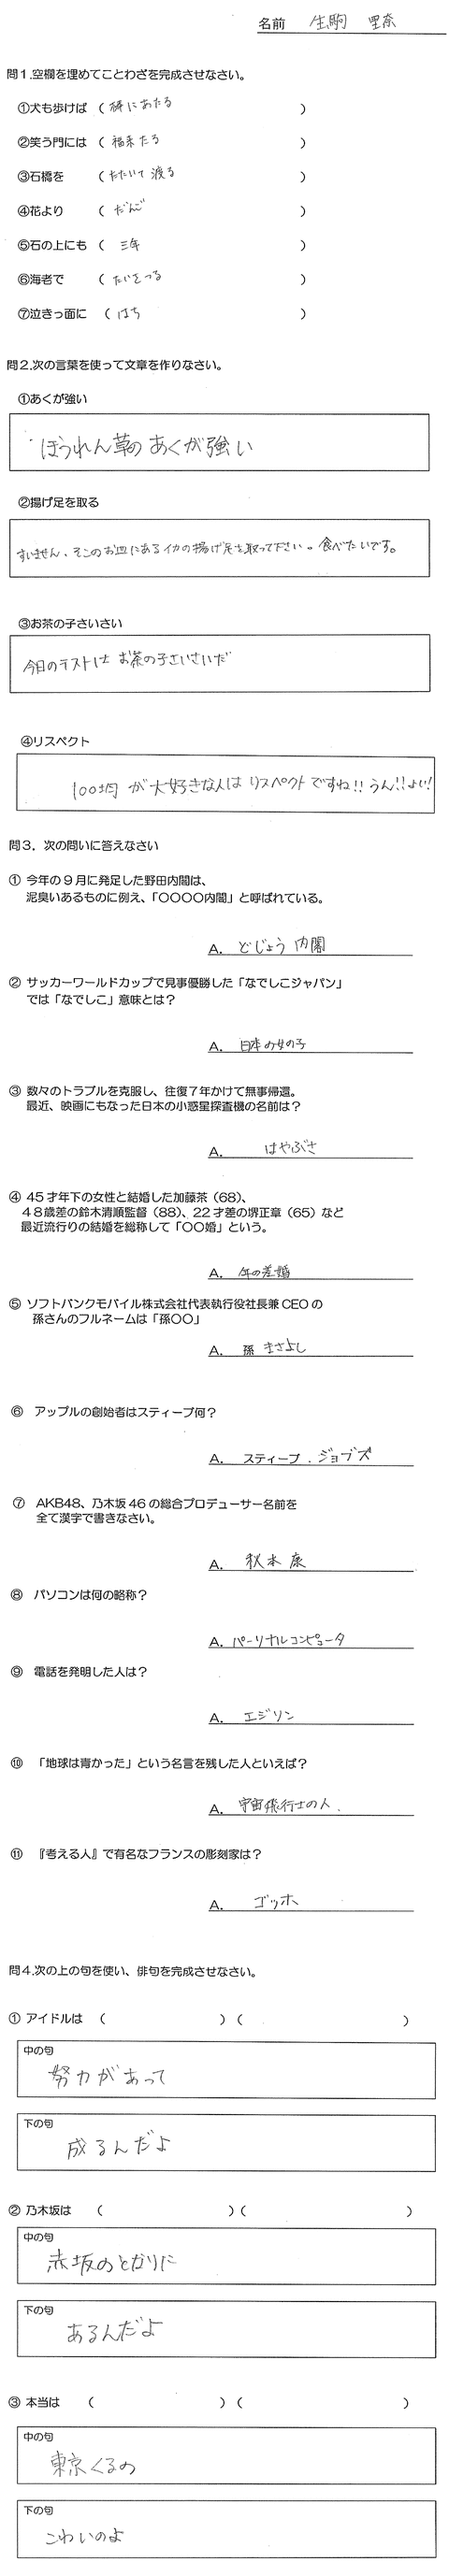 名前 生駒 里奈
問1.空欄を埋めてことわざを完成させなさい。
①犬も歩けば ( 棒にあたる )
②笑う門には ( 福来たる )
③石橋を ( たたいて渡る )
④花より ( だんご )
⑤石の上にも ( 三年 )
⑥海老で ( たいをつる )
⑦泣きっ面に ( はち )
問2.次の言葉を使って文章を作りなさい。
①あくが強い
ほうれん草のあくが強い
②揚げ足を取る
すいません、そこのお皿にあるイカの揚げ足を取って下さい。食べたいです。
③お茶の子さいさい
今日のテストはお茶の子さいさいだ
④リスペクト
100均が大好きな人はリスペクトですね!!うん!!よい!
問3. 次の問いに答えなさい
① 今年の9月に発足した野田内閣は、
泥臭いあるものに例え、「〇〇〇〇内閣」と呼ばれている。
A. どじょう内閣
② サッカーワールドカップで見事優勝した「なでしこジャパン」
では「なでしこ」意味とは?
A. 日本の女の子
③ 数々のトラブルを克服し、往復7年かけて無事帰還。
最近、映画にもなった日本の小惑星探査機の名前は?
A. はやぶさ
④ 45才年下の女性と結婚した加藤茶(68)、
48歳差の鈴木清順監督(88)、22才差の堺正章(65)など
最近流行りの結婚を総称して「〇〇婚」という。
A. 年の差婚
⑤ ソフトバンクモバイル株式会社代表執行役社長兼CEOの
孫さんのフルネームは「孫〇〇」
A. 孫 まさよし
⑥ アップルの創始者はスティーブ何?
A. スティーブ.ジョブズ
⑦ AKB48、乃木坂46の総合プロデューサー名前を
全て漢字で書きなさい。
A. 秋本康
⑧ パソコンは何の略称?
A. パーソナルコンピュータ
⑨ 電話を発明した人は?
A. エジソン
⑩ 「地球は青かった」という名言を残した人といえば?
A. 宇宙飛行士の人.
⑪ 『考える人』で有名なフランスの彫刻家は?
A. ゴッホ
問4.次の上の句を使い、俳句を完成させなさい。
① アイドルは ( ) ( )
中の句
努力があって
下の句
成るんだよ
② 乃木坂は ( ) ( )
中の句
赤坂のとなりに
下の句
あるんだよ
③ 本当は ( ) ( )
中の句
東京くるの
下の句
こわいのよ